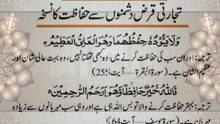 تجارتی قرض دشمنوں سے حفاظت کا نسخہ
وَلَا يَـُٔودُهُ حِفْظُهُمَا وَهُوَ الْعَلِيُّ الْعَظِيمُ
ترجمہ: اور ان سب کی حفاظت کرنے میں وہ نہیں تھکتا، وہ بہت عالی شان اور
عظیم ہے۔ (سورۃ البقرۃ، آیت 255)
فَاللَّهُ خَيْرٌ حَافِظًا وَهُوَ أَرْحَمُ الرَّاحِمِينَ
ترجمہ: بہتر حفاظت کرنے والا تو بس اللہ ہی ہے اور وہی سب مہربانوں سے زیادہ
مہربان ہے۔ (سورۃ یوسف، آیت 64)